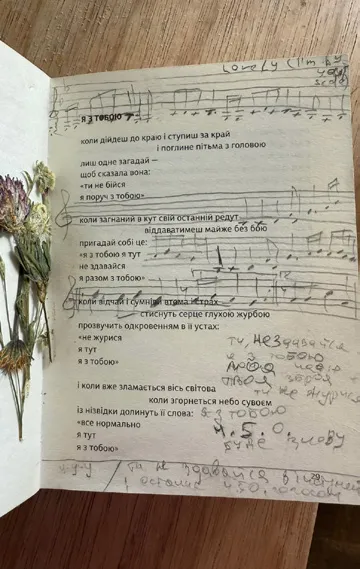 Lovely (I'm by
your
side)
Я З ТОБОЮ
коли дійдеш до краю і ступиш за край
і поглине пітьма з головою
лиш одне загадай –
щоб сказала вона:
«ти не бійся
я поруч з тобою»
коли загнаний в кут свій останній редут
віддаватимеш майже без бою
пригадай собі це:
«я з тобою я тут
не здавайся
я разом з тобою»
коли відчай і сумніви втома і страх
стиснуть серце глухою журбою
прозвучить одкровенням в її устах:
«не журися
я тут
я з тобою»
ти, не здавайся
я з тобою
твоя зброя
ти не журися
і коли вже зламається вісь світова
коли згорнеться небо сувоєм
із нізвідки долинуть її слова:
«все нормально
я тут
я з тобою»
я з тобою
Я. Б. О.
буде знову
29
у-у-у
ти не здавайся
і останнє
голосом